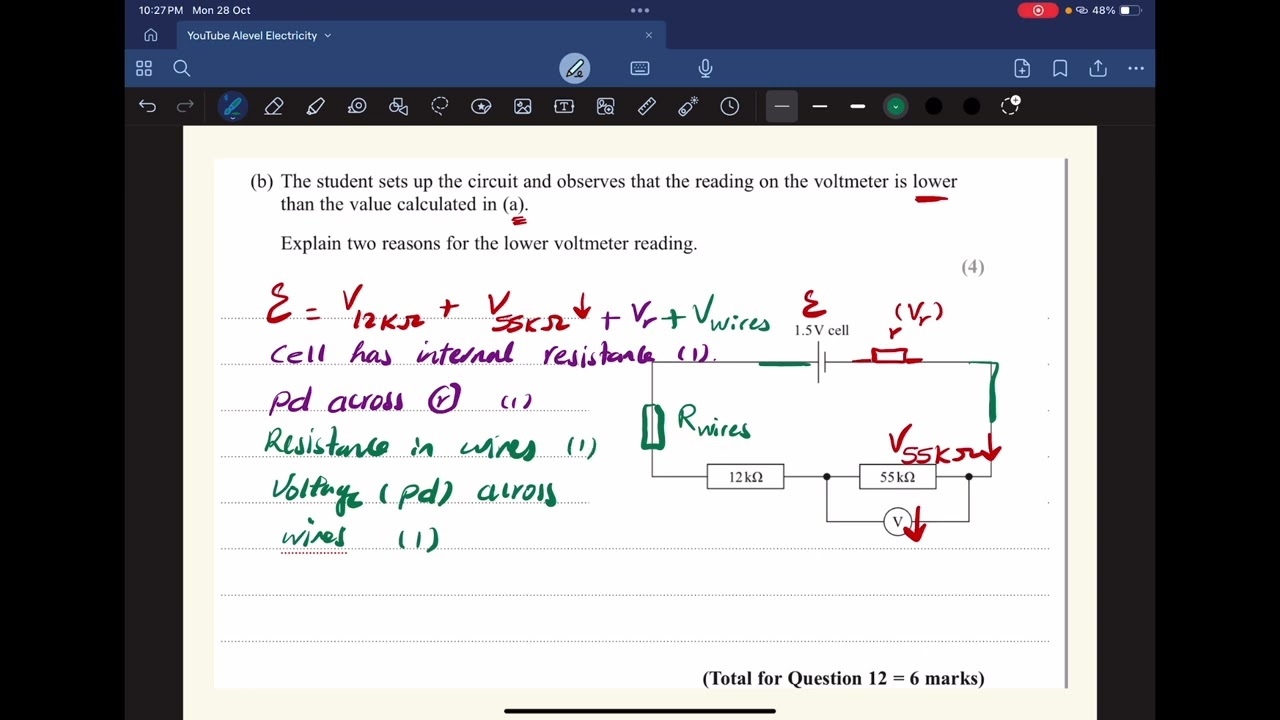 10:27 PM Mon 28 Oct
48%
YouTube Alevel Electricity
(b) The student sets up the circuit and observes that the reading on the voltmeter is lower
than the value calculated in (a).
Explain two reasons for the lower voltmeter reading.
(4)
Ɛ = V12KΩ + V55KΩ ↓ + Vr + Vwires
Cell has internal resistance (1).
pd across r (1)
Resistance in wires (1)
Voltage (pd) across
wires (1)
Ɛ
1.5 V cell
(Vr)
r
Rwires
V55KΩ ↓
12 kΩ
55 kΩ
V ↓
(Total for Question 12 = 6 marks)